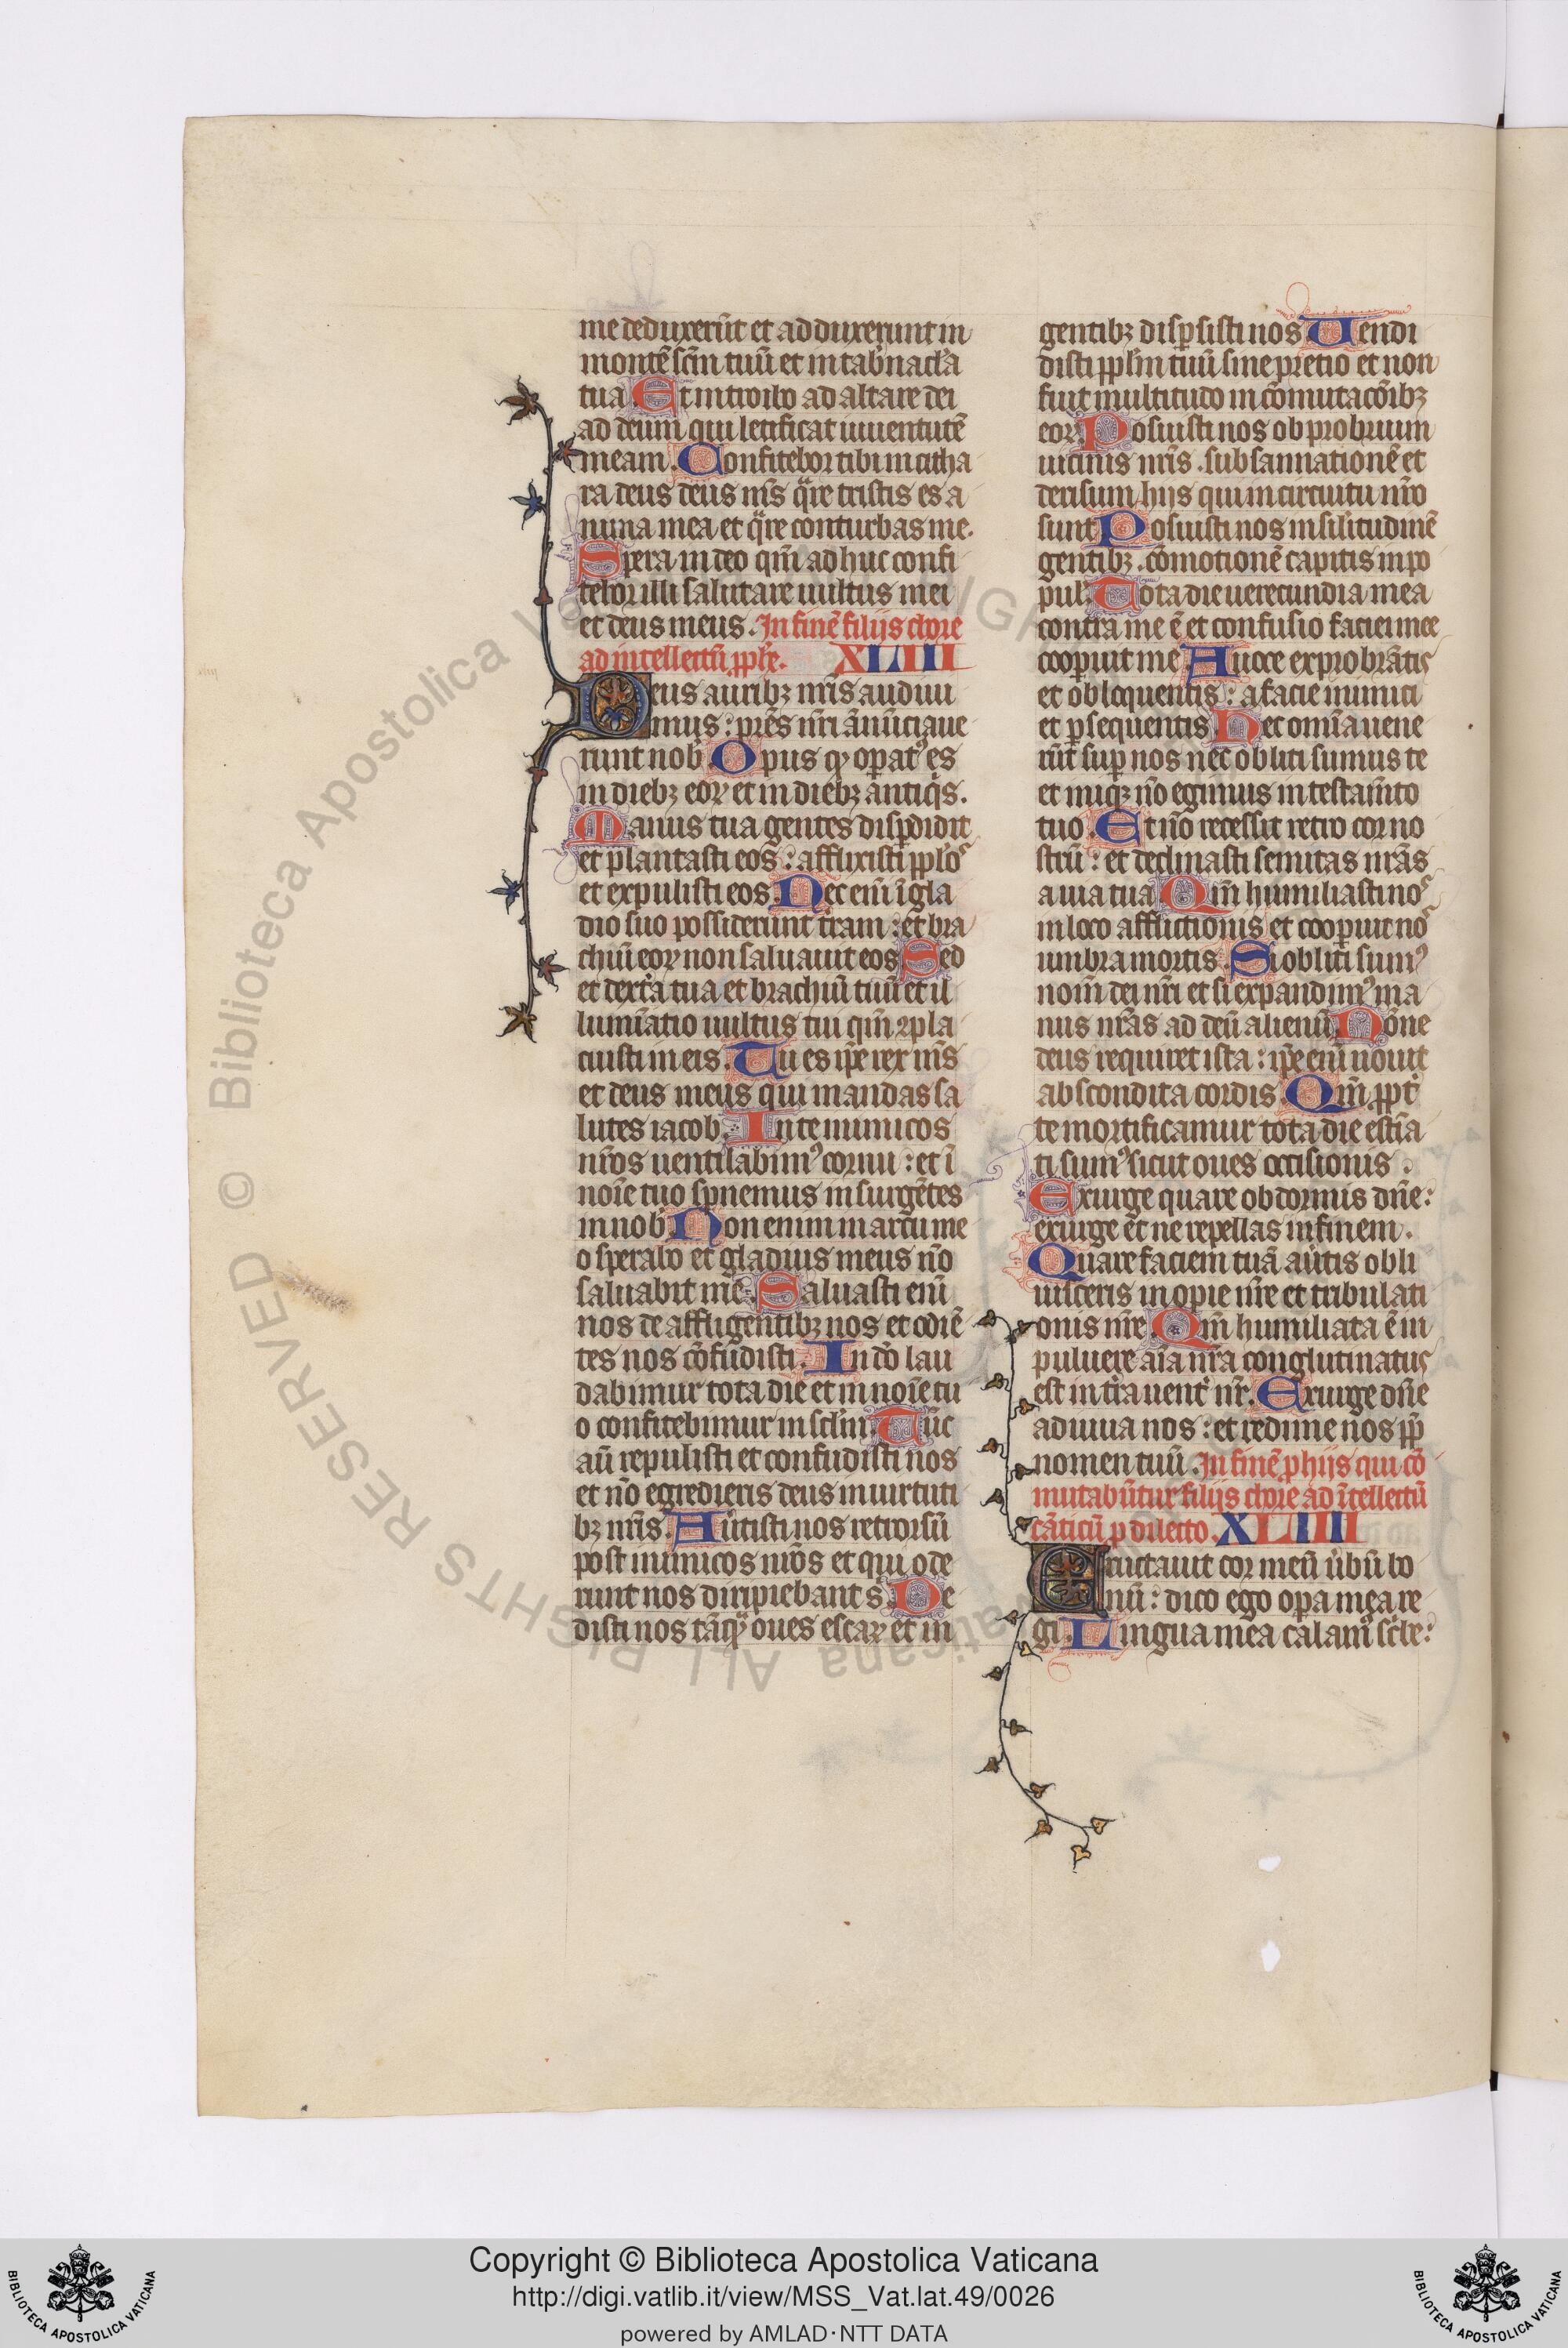 me deduxerũt et adduxerunt in
montẽ sc̃m tuũ et in tab̃nacła
tua. Et introibo ad altare dei
ad deum qui letificat iuuentutẽ
meam. Confitebor tibi in citha
ra deus deus ms̃ q̃re tristis es a
nima mea et q̃re conturbas me.
Spera in deo qm̃ adhuc confi
tebor illi salutare uultus mei
et deus meus. In finẽ filijs chore
ad intellectũ ꝓpħe. XLIII
Deus auribꝫ nr̃is audiui
mus: prẽs nr̃i ãnũciaue
runt nob̃. Opus qꝺ opatꝰ es
in diebꝫ eoꝝ et in diebꝫ antiq̃s.
Manus tua gentes disꝑdidit
et plantasti eos: afflixisti ppło
et expulisti eos. Nec eni ĩ gla
dio suo possiderunt tr̃am: et bra
chiũ eoꝝ non saluauit eos. Sed
et dext̃a tua et brachiũ tuũ et il
lumĩatio uultus tui qm̃ ꝯpla
cuisti in eis. Tu es ip̃e rex ms̃
et deus meus qui mandas sa
lutes iacob. In te inimicos
nr̃os uentilabimꝰ cornu: et ĩ
noĩe tuo sp̃nemus insurgẽtes
in nob̃. Non enim in arcu me
o sperabo et gladius meus nõ
saluabit me. Saluasti eni
nos de affligentibꝫ nos et odiẽ
tes nos cõfũdisti. In dõ lau
dabimur tota die et in noĩe tu
o confitebimur in sc̃lm. Nũc
aũ repulisti et confudisti nos
et nõ egredieris deus in uirtuti
bꝫ nr̃is. Auẽtisti nos retrorsũ
post inimicos nr̃os et qui ode
runt nos diripiebant s̃. De
disti nos tãqͣ oues escaꝝ et in
gentibꝫ disꝑsisti nos. Uendi
disti ppłm tuũ sine pretio et non
fuit multitudo in cõmutacõibꝫ
eoꝝ. Posuisti nos obprobrium
uicinis nr̃is. subsannationẽ et
derisum hijs qui in circuitu nr̃o
sunt. Posuisti nos in similitudinẽ
gentibꝫ. cõmotionẽ capitis in po
pul. Tota die uerecundia mea
contra me ẽ et confusio faciei mee
cooꝑuit me. A uoce exprobrãtis
et obloquentis: a facie inimici
et ꝑsequentis. Hec omĩa uene
rũt suꝑ nos nec obliti sumus te
et iniqꝫ nõ egimus in testam̃to
tuo. Et nõ recessit retro cor no
strũ: et declinasti semitas nr̃as
a uia tua. Qm̃ humiliasti nos
in loco afflictionis et cooꝑuit nos
umbra mortis. Si obliti sumꝰ
nom̃ dei nr̃i et si expandimꝰ ma
nus nr̃as ad deũ alienũ. Nõne
deus requiret ista: ip̃e eni nouit
abscondita cordis. Qm̃ ꝓpt̃
te mortificamur tota die estĩa
ti sumꝰ sicut oues occisionis.
Exurge quare obdormis dñe:
exurge et ne repellas in finem.
Quare faciem tuã auẽtis obli
uisceris inopie nr̃e et tribulati
onis nr̃e. Qm̃ humiliata ẽ in
puluere aĩa nr̃a conglutinatus
est in t̃ra uent̃ nr̃. Exurge dñe
adiuua nos: et redime nos ꝓp̃
nomen tuũ. In finẽ ꝓ hijs qui cõ
mutabũtur filijs chore ad ĩtellectũ
cãticũ ꝓ dilecto. XLIIII
Eructauit cor meũ ũbũ bo
nũ: dico ego opa mea re
gi. Lingua mea calamꝰ sc̃be:
Copyright © Biblioteca Apostolica Vaticana
http://digi.vatlib.it/view/MSS_Vat.lat.49/0026
powered by AMLAD·NTT DATA